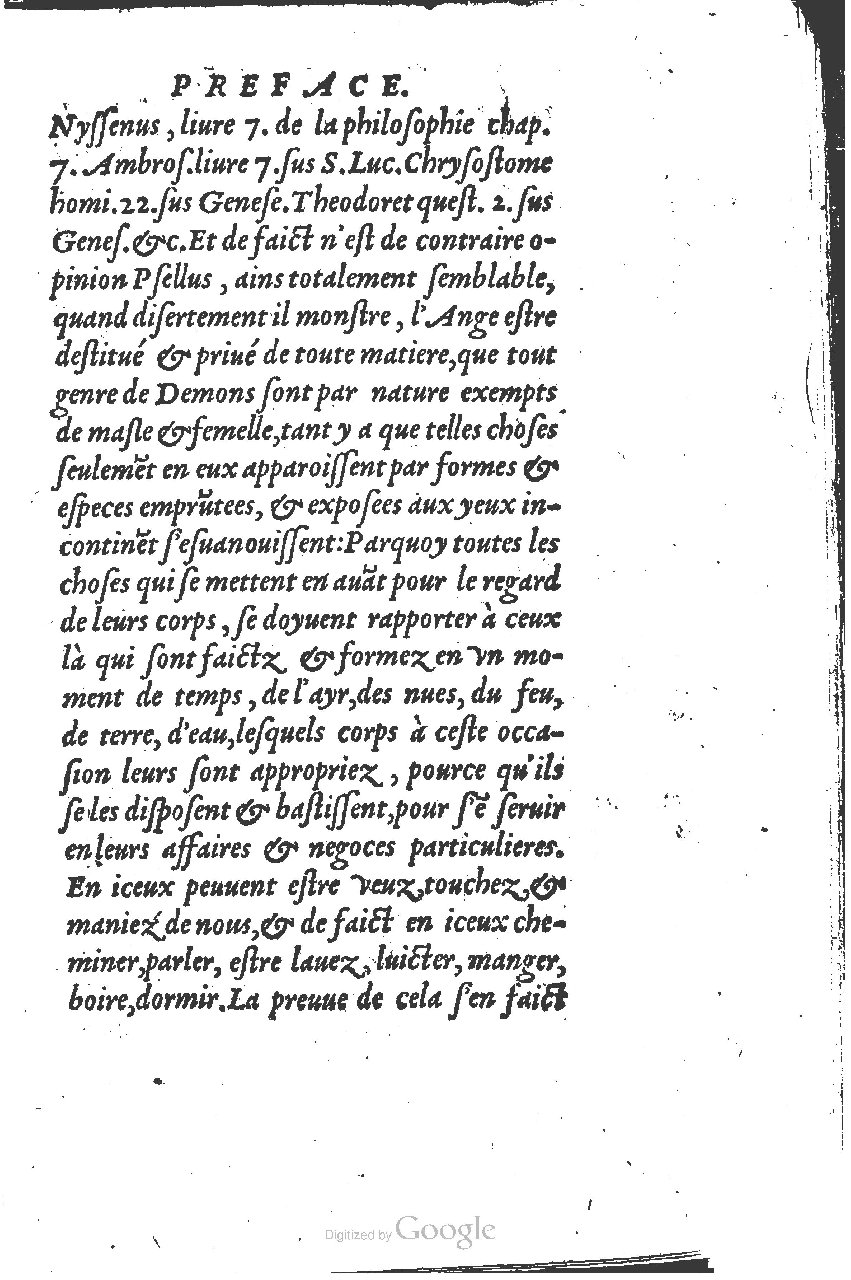 PREFACE.
Nyſſenus, liure 7. de la philoſophie chap.
7. Ambroſ. liure 7. ſus S. Luc. Chryſoſtome
homi. 22. ſus Geneſe. Theodoret queſt. 2. ſus
Geneſ. &c. Et de faict n'eſt de contraire o-
pinion Pſellus, ains totalement ſemblable,
quand diſertement il monſtre, l'Ange eſtre
deſtitué & priué de toute matiere, que tout
genre de Demons ſont par nature exempts
de maſle & femelle, tant y a que telles choſes
ſeulemẽt en eux apparoiſſent par formes &
eſpeces emprũtees, & expoſees aux yeux in-
continẽt ſ'eſuanouiſſent: Parquoy toutes les
choſes qui ſe mettent en auãt pour le regard
de leurs corps, ſe doyuent rapporter à ceux
là qui ſont faictz & formez en vn mo-
ment de temps, de l'ayr, des nues, du feu,
de terre, d'eau, leſquels corps à ceſte occa-
ſion leurs ſont appropriez, pource qu'ils
ſe les diſpoſent & baſtiſſent, pour ſ'ẽ ſeruir
en leurs affaires & negoces particulieres.
En iceux peuuent eſtre veuz, touchez, &
maniez de nous, & de faict en iceux che-
miner, parler, eſtre lauez, luicter, manger,
boire, dormir. La preuue de cela ſ'en faict
Digitized by Google